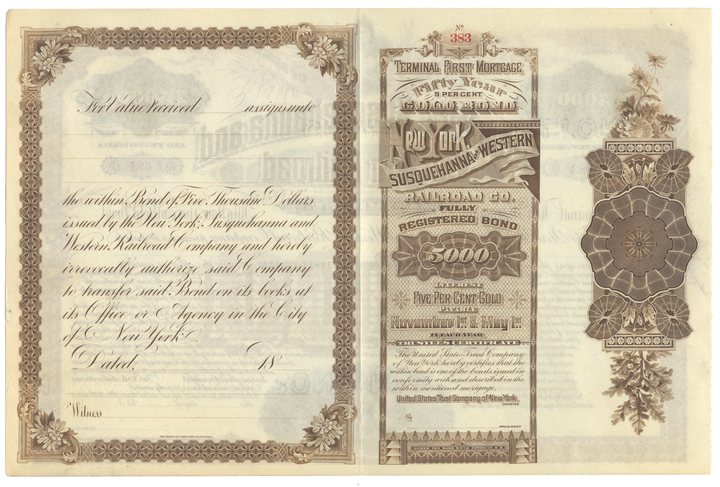 For Value Received assigns unto
the within Bond of Five Thousand Dollars
issued by the New York, Susquehanna and
Western Railroad Company and hereby
irrevocably authorize said Company
to transfer said Bond on its books at
its Office or Agency in the City
of New York.
Dated, 18
Witness
No
383
TERMINAL FIRST MORTGAGE
Fifty Year
5 PER CENT
GOLD BOND
New York,
SUSQUEHANNA AND WESTERN
RAILROAD CO.
FULLY
REGISTERED BOND
5000
INTEREST
FIVE PER CENT GOLD
PAYABLE
November 1st & May 1st
IN EACH YEAR
TRUSTEE'S CERTIFICATE
The United States Trust Company
of New York, hereby certifies that the
within bond is one of the bonds issued in
conformity with and described in the
within mentioned mortgage.
United States Trust Company of New York,
TRUSTEE
By
PRESIDENT